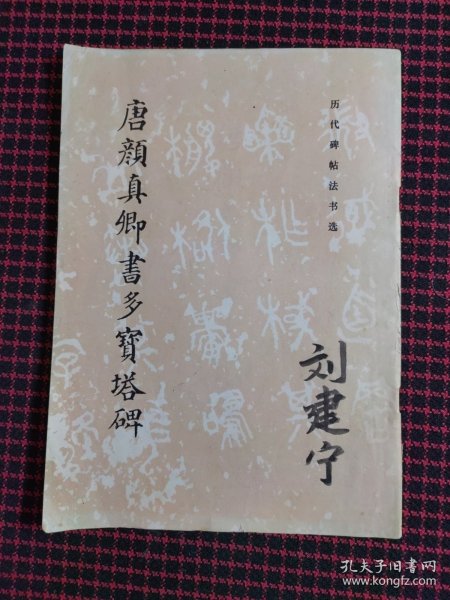 历代碑帖法书选
唐颜真卿書多寶塔碑
刘建宁
孔夫子旧书网
www.kongfz.com